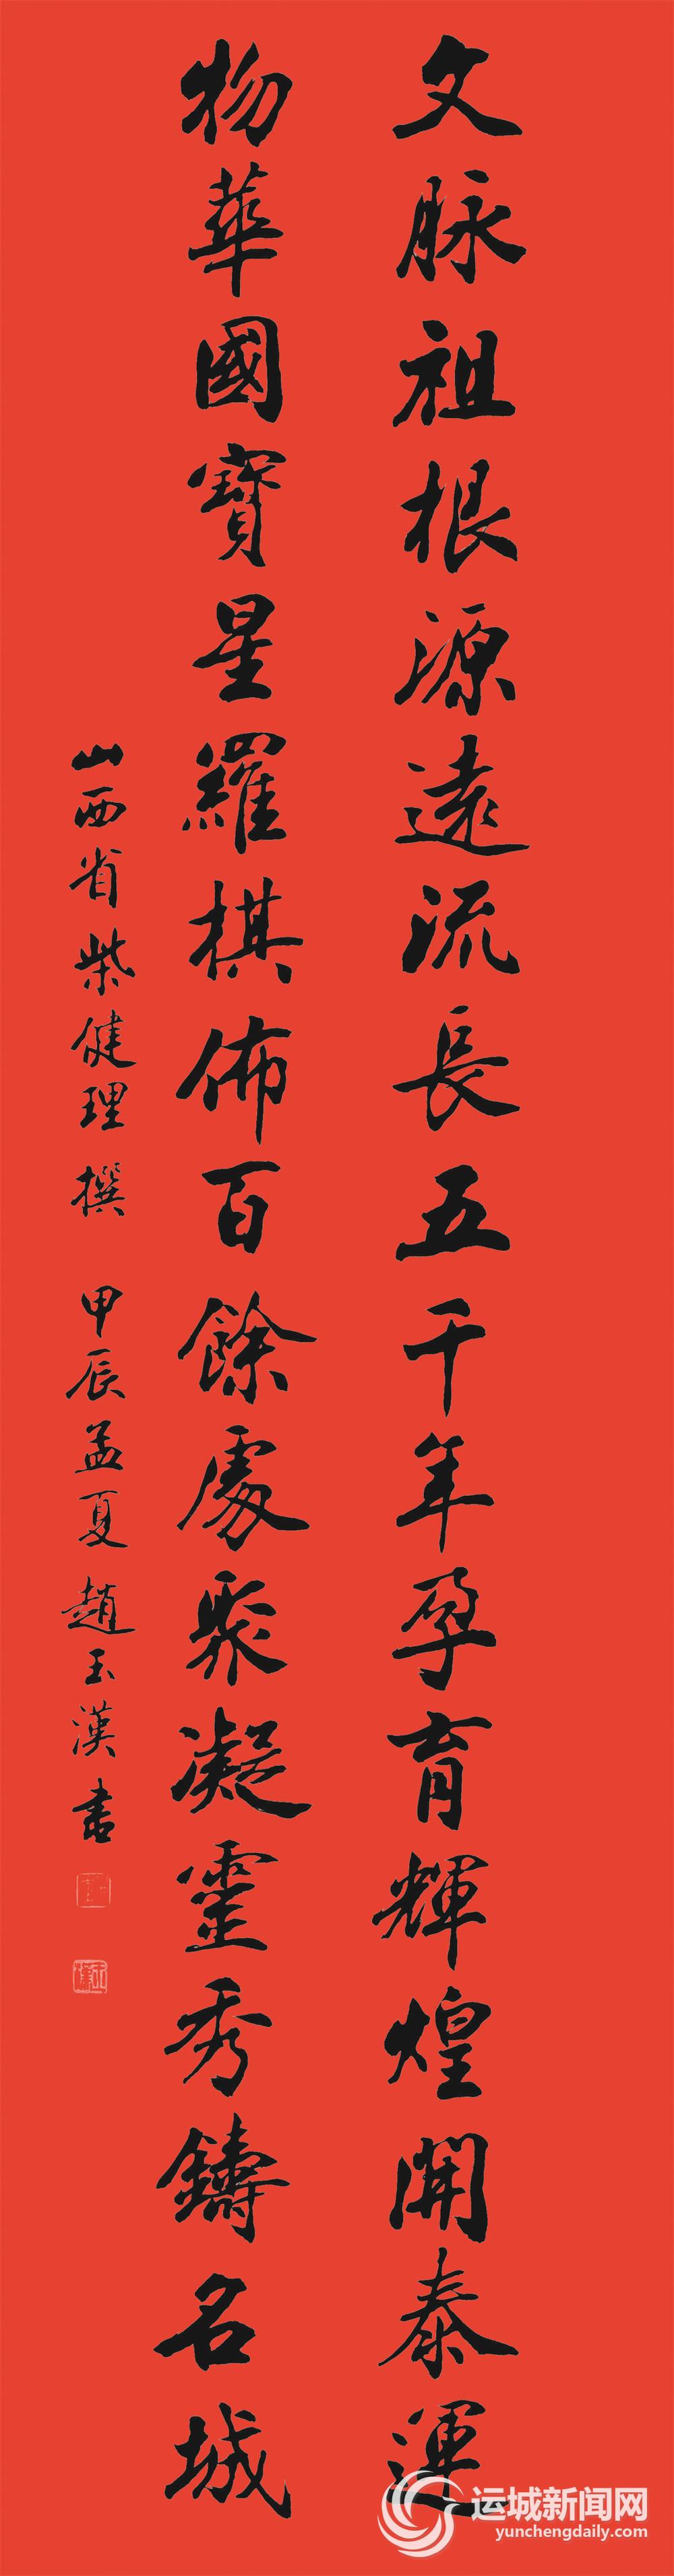 文脉祖根源遠流長五千年孕育輝煌開泰運
物華國寶星羅棋佈百餘處聚凝靈秀鑄名城
山西省柴健理撰 甲辰孟夏趙玉漢書
运城新闻网
yunchengdaily.com